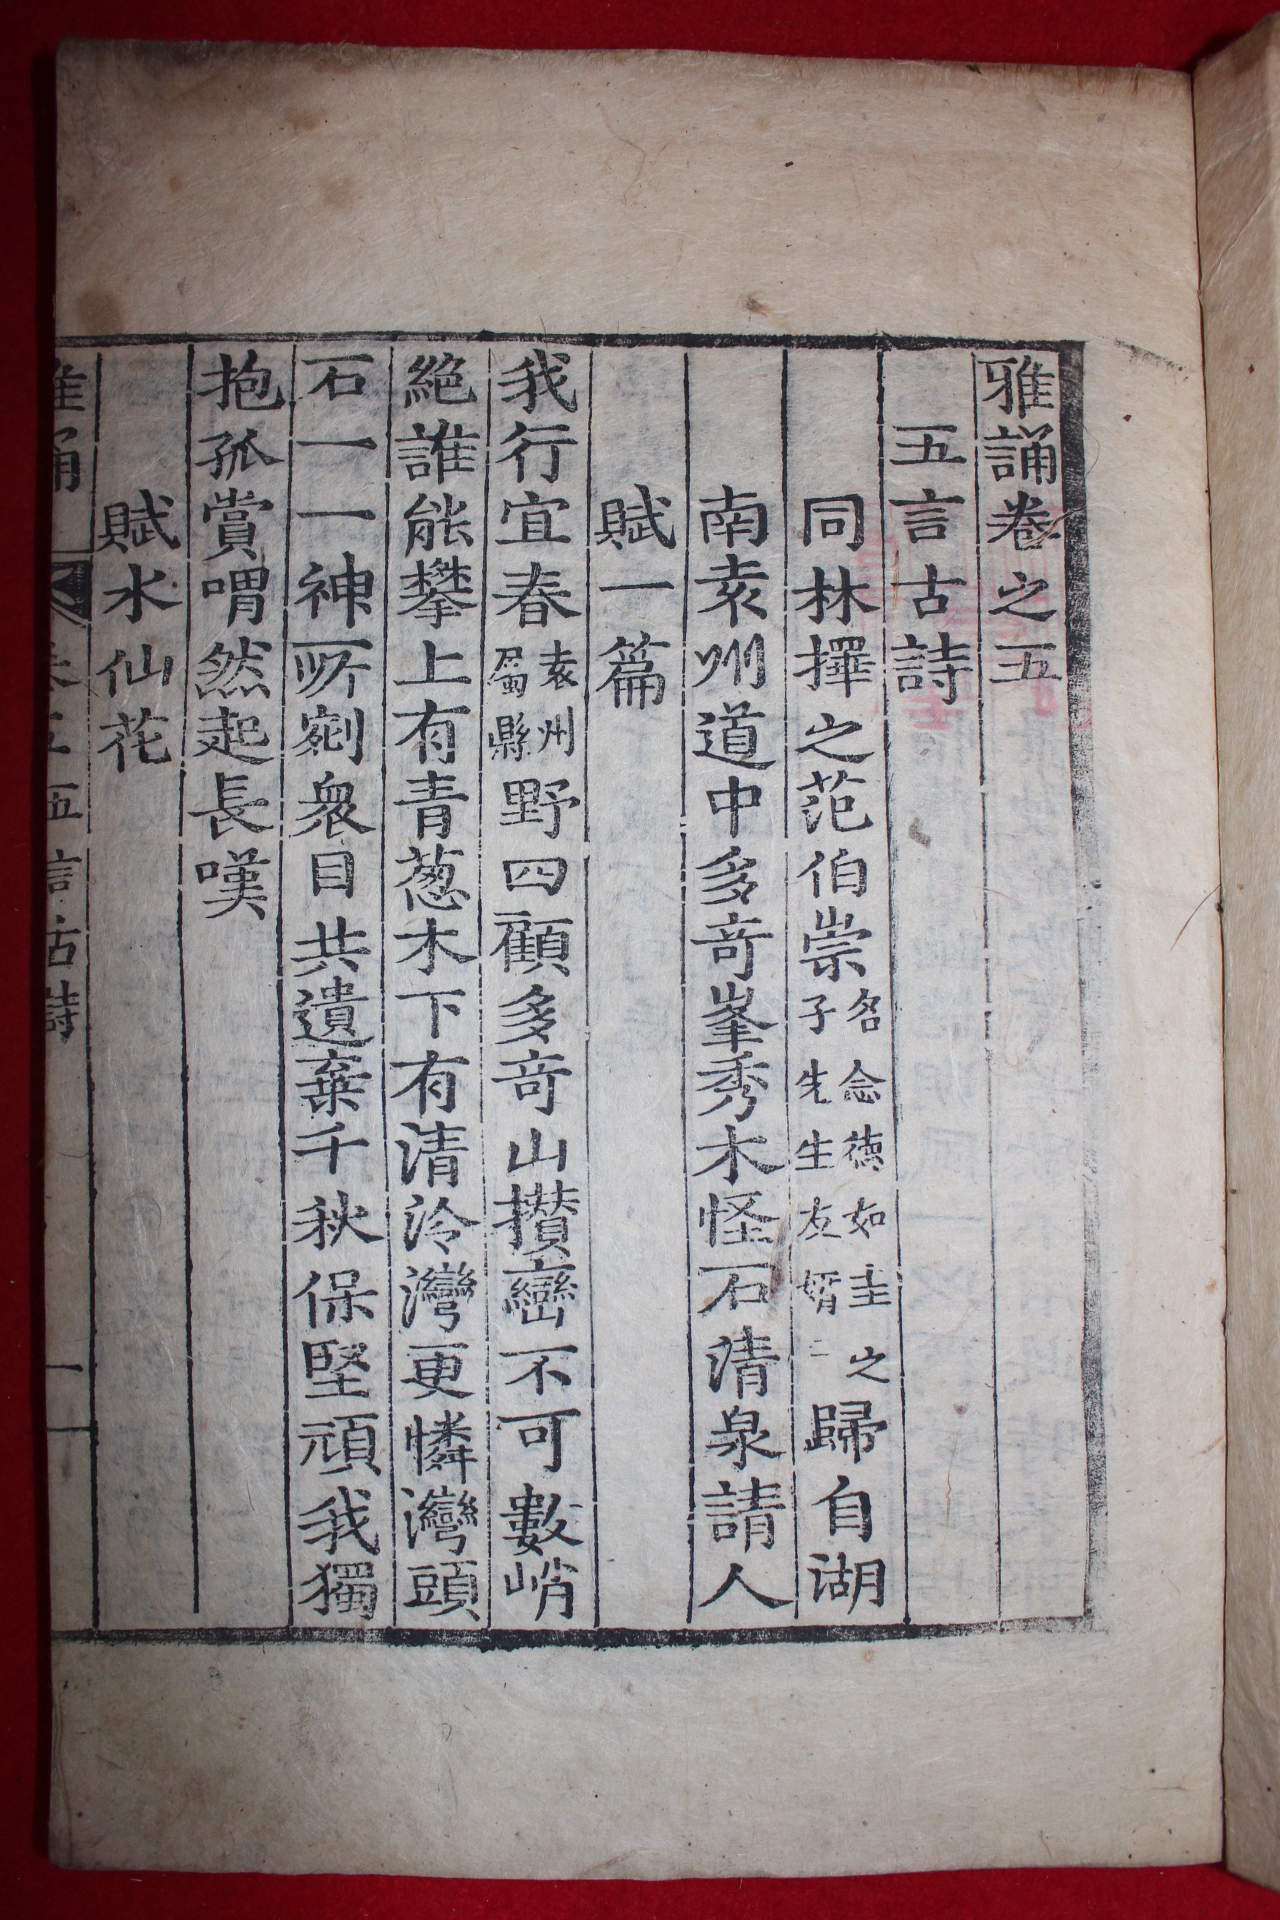 雅誦卷之五
五言古詩
同林擇之范伯崇名念德如圭之子先生友婿二歸自湖
南袁州道中多奇峯秀木怪石清泉請人
賦一篇
我行宜春袁州屬縣野四顧多奇山攢巒不可數峭
絶誰能攀上有青葱木下有清泠灣更憐灣頭
石一一神所剜衆目共遺棄千秋保堅頑我獨
抱孤賞喟然起長嘆
賦水仙花
雅誦 卷五 五言古詩 一